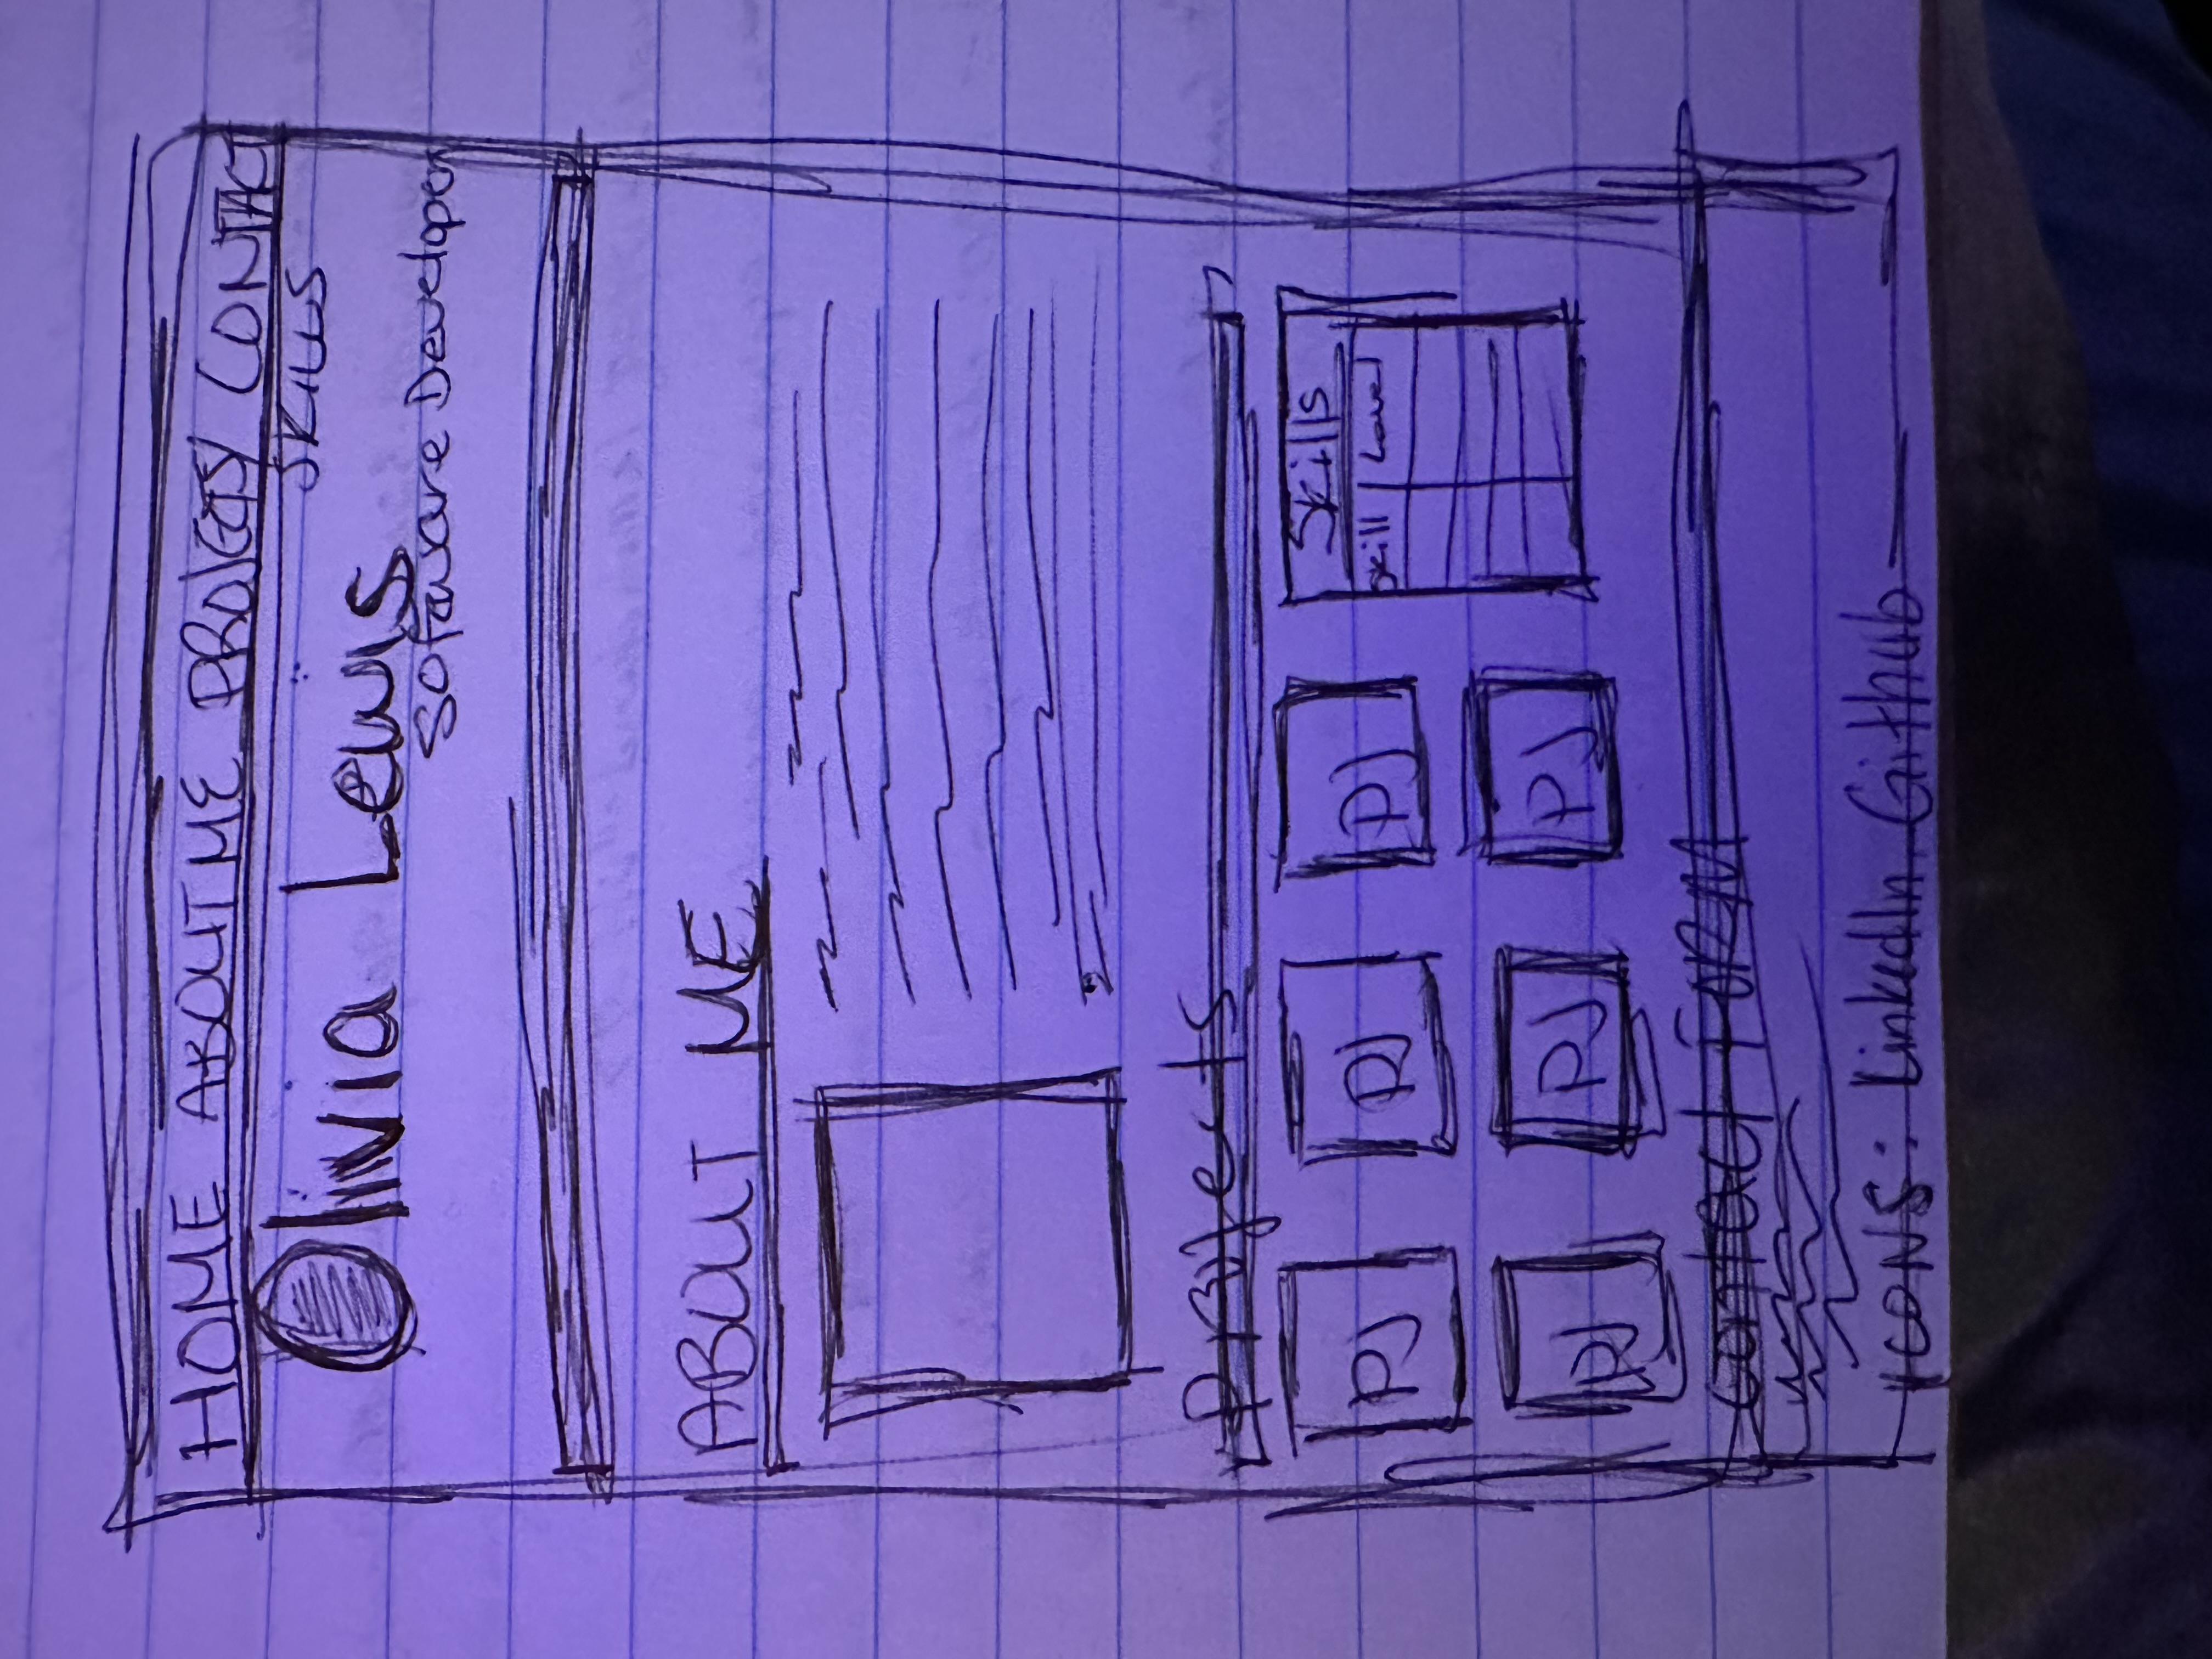 HOME ABOUT ME PROJECTS/ CONTACT
SKILLS
Olivia Lewis
Software Developer
ABOUT ME
projects
PJ PJ PJ
Skills
Skill Level
PJ PJ PJ
contact FORM
ICONS: LinkedIn, Github